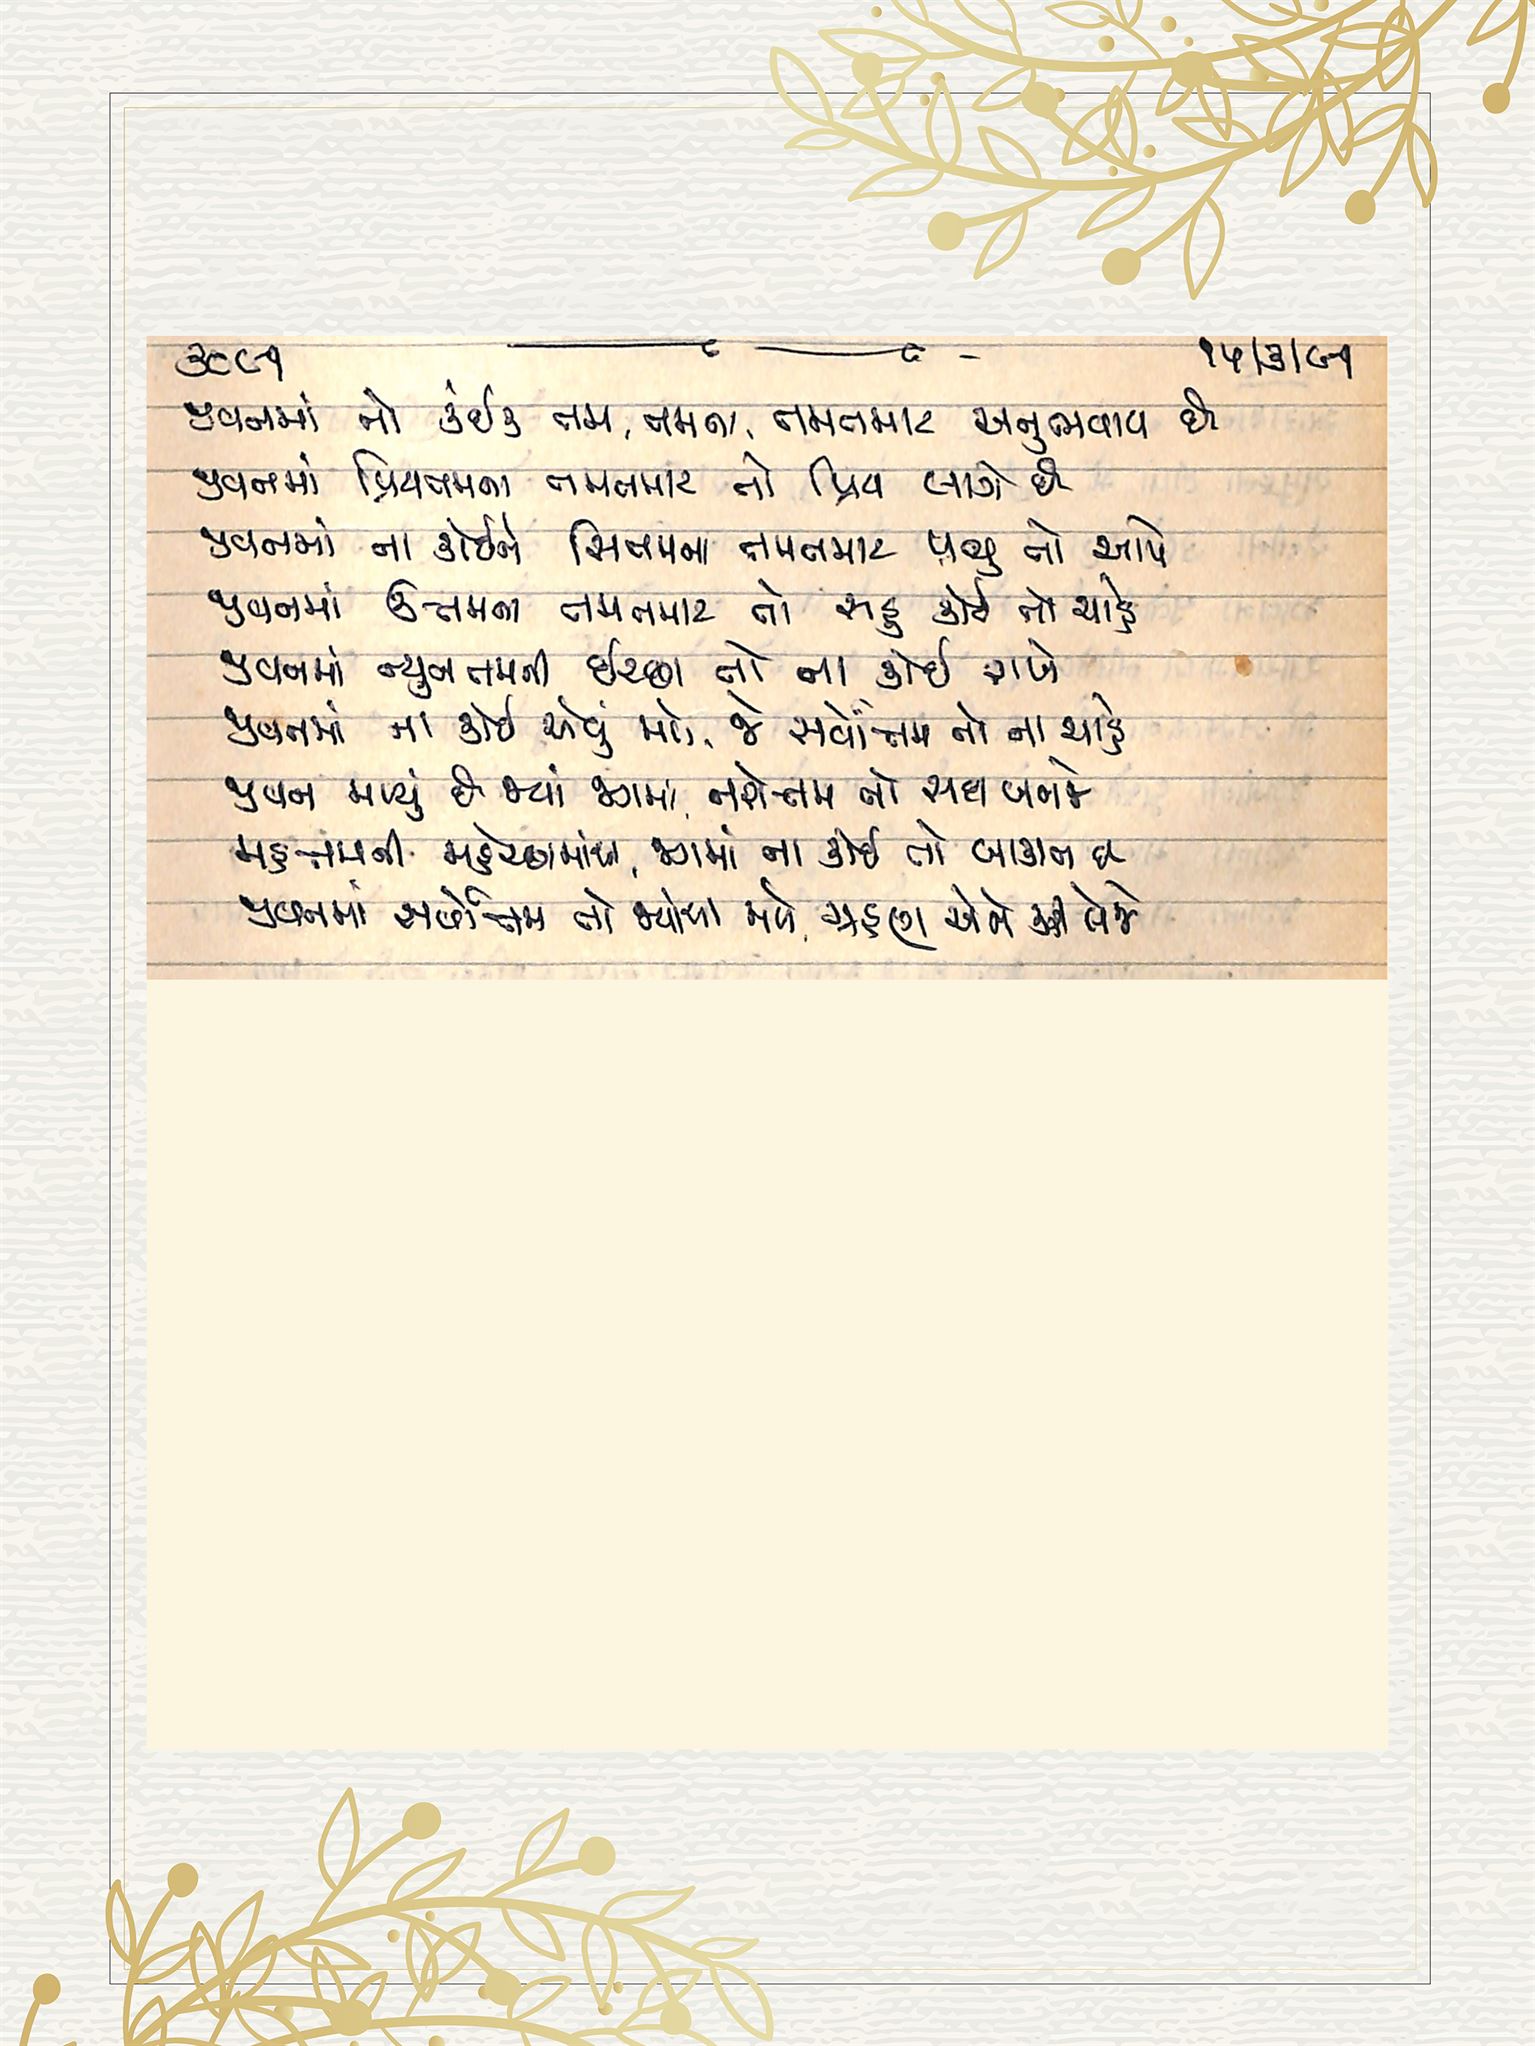 ૩૮૯૧ ૧૫/૩/૯૧
જીવનમાં તો કંઈક તમ, તમના, તમતમાટ અનુભવાય છે
જીવનમાં પ્રિયતમના તમતમાટ તો પ્રિય લાગે છે
જીવનમાં ના કોઈને સિતમના તમતમાટ પચ્યા તો આપે
જીવનમાં ઉત્તમના તમતમાટ તો સહુ કોઈ તો ચાહે
જીવનમાં ન્યુનતમની ઈચ્છા તો ના કોઈ રાખે
જીવનમાં ના કોઈ એવું મળે, જે સર્વોત્તમ તો ના ચાહે
જીવન મળ્યું છે જ્યાં જગમાં, નરોત્તમ તો સદા બનજે
મહત્તમની મહેચ્છામાંથી, જગમાં ના કોઈ તો બાકાત છે
જીવનમાં સર્વોત્તમ તો જ્યાંથી મળે, ગ્રહણ એને કરી લેજે